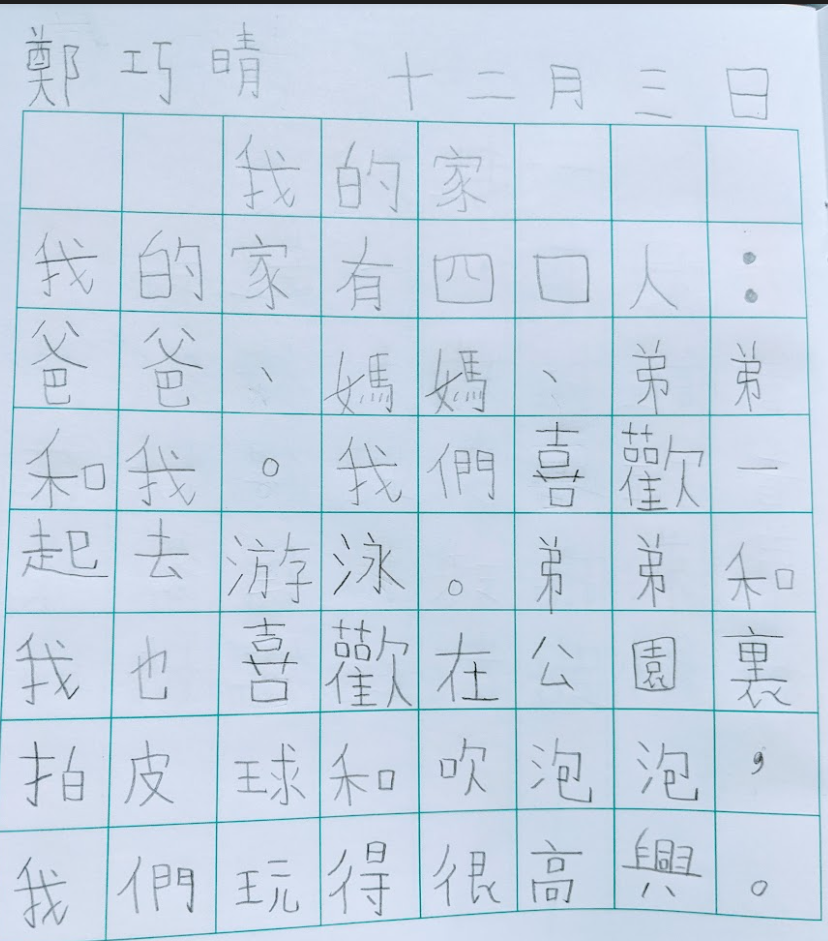 鄭巧晴 十二月三日
我的家
我的家有四口人：
爸爸、媽媽、弟弟
和我。我們喜歡一
起去游泳。弟弟和
我也喜歡在公園裏
拍皮球和吹泡泡，
我們玩得很高興。